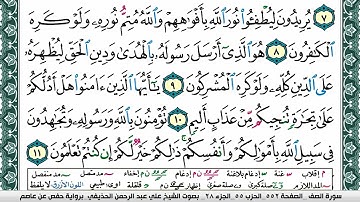 ٧ يُرِيدُونَ لِيُطْفِـُٔوا۟ نُورَ ٱللَّهِ بِأَفْوَٰهِهِمْ وَٱللَّهُ مُتِمُّ نُورِهِۦ وَلَوْ كَرِهَ
ٱلْكَٰفِرُونَ ٨ هُوَ ٱلَّذِىٓ أَرْسَلَ رَسُولَهُۥ بِٱلْهُدَىٰ وَدِينِ ٱلْحَقِّ لِيُظْهِرَهُۥ
عَلَى ٱلدِّينِ كُلِّهِۦ وَلَوْ كَرِهَ ٱلْمُشْرِكُونَ ٩ يَٰٓأَيُّهَا ٱلَّذِينَ ءَامَنُوا۟ هَلْ أَدُلُّكُمْ
عَلَىٰ تِجَٰرَةٍ تُنجِيكُم مِّنْ عَذَابٍ أَلِيمٍ ١٠ تُؤْمِنُونَ بِٱللَّهِ وَرَسُولِهِۦ وَتُجَٰهِدُونَ
فِى سَبِيلِ ٱللَّهِ بِأَمْوَٰلِكُمْ وَأَنفُسِكُمْ ذَٰلِكُمْ خَيْرٌ لَّكُمْ إِن كُنتُمْ تَعْلَمُونَ ١١
سورة الصف الصفحة ٥٥٢ الحزب ٥٥ الجزء ٢٨ بصوت الشيخ علي عبد الرحمن الحذيفي برواية حفص عن عاصم